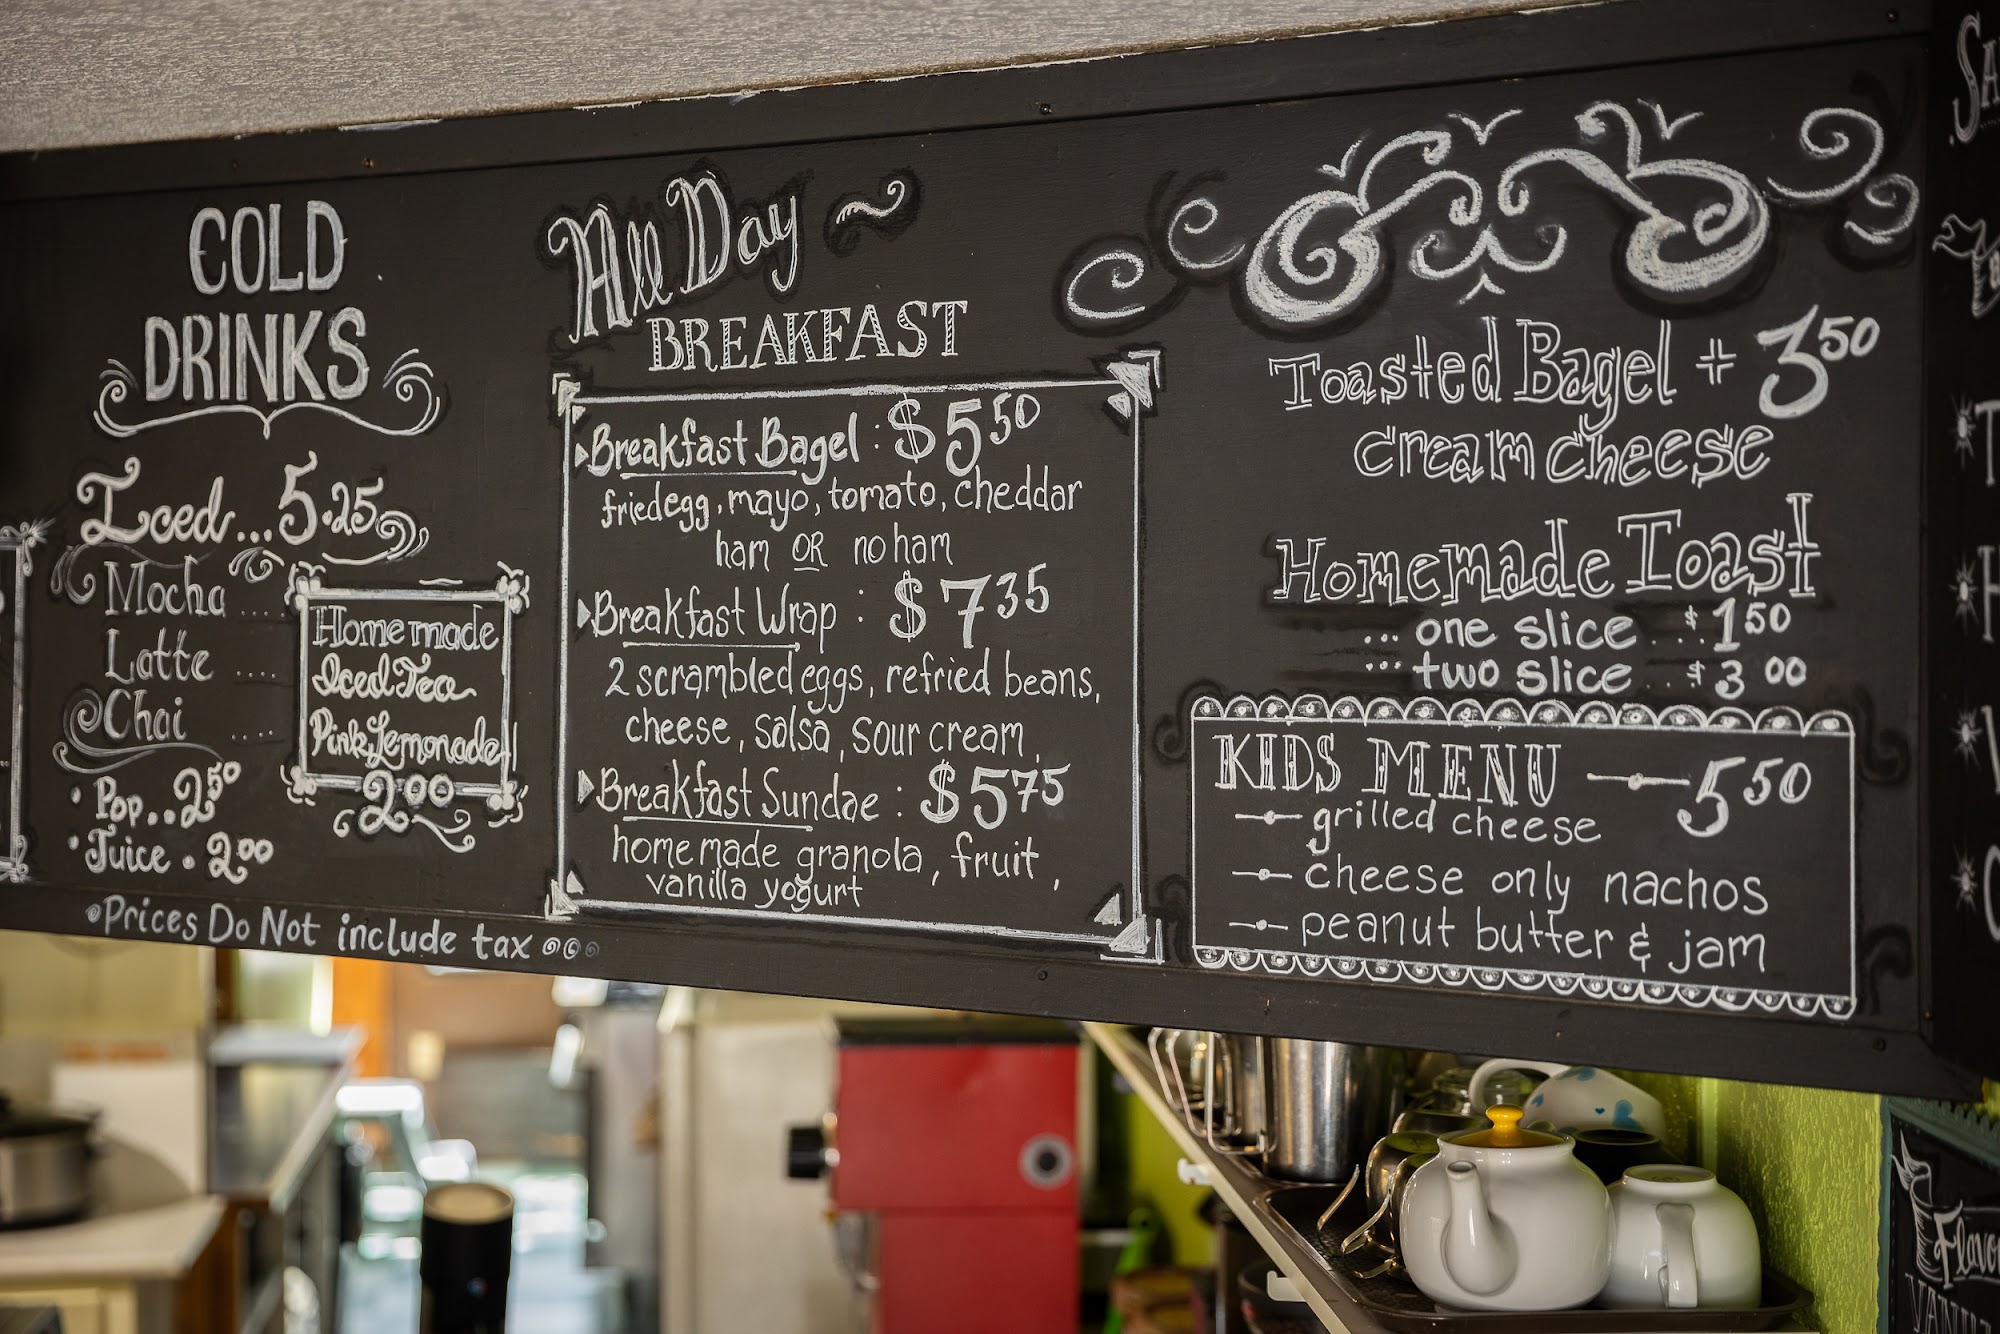 COLD
DRINKS
Iced... 5.25
Mocha ....
Latte ....
Chai ....
Homemade
Iced Tea
Pink Lemonade
2.00
• Pop.. 2.50
• Juice . 2.00
Prices Do Not include tax
All Day
BREAKFAST
Breakfast Bagel : $5.50
fried egg, mayo, tomato, cheddar
ham OR no ham
Breakfast Wrap : $7.35
2 scrambled eggs, refried beans,
cheese, salsa, sour cream
Breakfast Sundae : $5.75
homemade granola, fruit,
vanilla yogurt
Toasted Bagel + 3.50
cream cheese
Homemade Toast
... one slice .. $1.50
... two slice .. $3.00
KIDS MENU 5.50
grilled cheese
cheese only nachos
peanut butter & jam